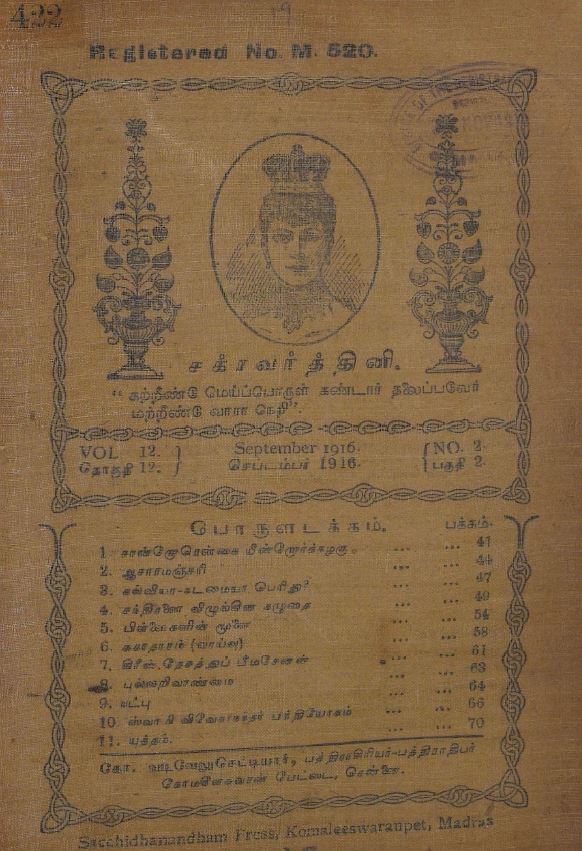 422
19
Registered No. M. 520.
சக்ரவர்த்தினி.
"கற்றீண்டு மெய்ப்பொருள் கண்டார் தலைப்படுவேர்
மற்றீண்டு வாரா நெறி".
VOL 12. September 1916. NO. 2.
தொகுதி 12. செப்டம்பர் 1916. பகுதி 2.
பொருளடக்கம். பக்கம்.
1. ... ... 41
2. ஆசாரமஞ்சரி ... ... 44
3. கல்வியா-கடமையா பெரிது? ... ... 47
4. சந்திரனை விழுங்கின கழுதை ... ... 49
5. பிள்ளைகளின் மூளை ... ... 54
6. சுகாதாரம் (வாய்வு) ... ... 58
7. கிரீஸ் தேசத்துப் பீமசேனன் ... ... 61
8. புல்லறிவாண்மை ... ... 63
9. நட்பு ... ... 64
10. ஸ்வாமி விவேகாநந்தர் பக்தியோகம் ... ... 66
11. யுத்தம். ... ... 70
கோ. வடிவேலுசெட்டியார், பத்திராசிரியர்-பத்திராதிபர்
கோமளீசுவரன் பேட்டை, சென்னை.
Sacchidhanandham Press, Komaleeswaranpet, Madras